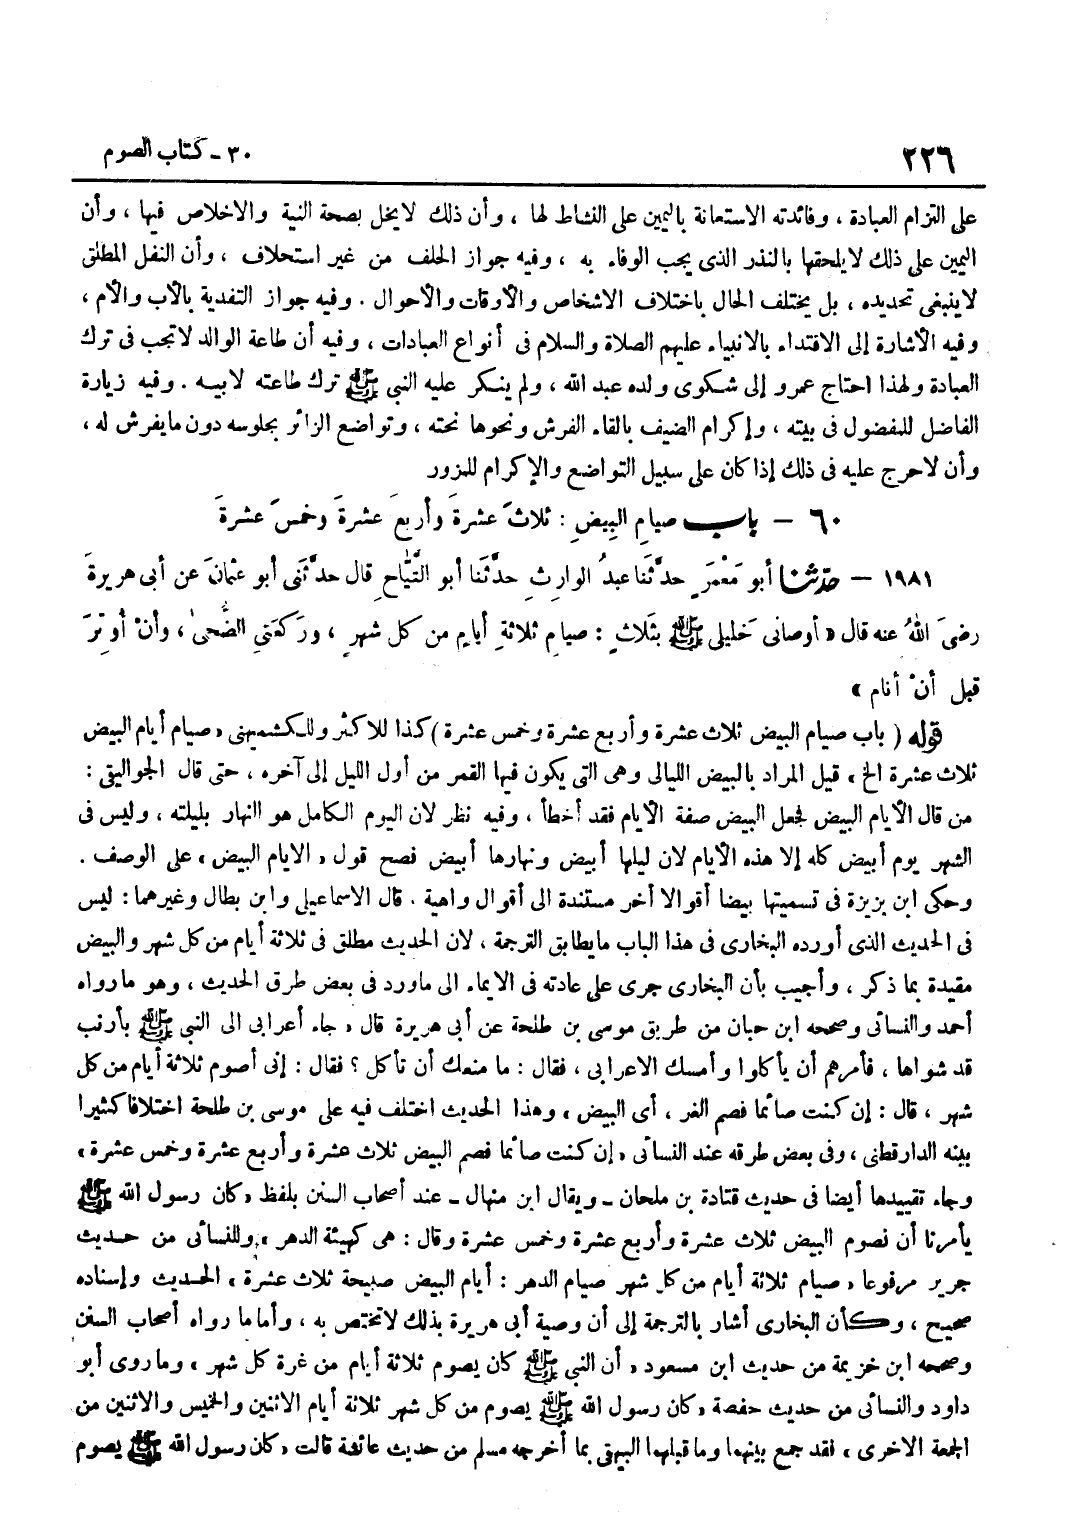 ٢٢٦ ٣٠ - كتاب الصوم
على التزام العبادة ، وفائدته الاستعانة باليمين على النشاط لها ، وأن ذلك لايخل بصحة النية والاخلاص فيها ، وأن
اليمين على ذلك لايلحقها بالنذر الذى يجب الوفاء به ، وفيه جواز الحلف من غير استحلاف ، وأن النفل المطلق
لاينبغى تحديده ، بل يختلف الحال باختلاف الاشخاص والأوقات والأحوال . وفيه جواز التفدية بالأب والأم ،
وفيه الأشارة إلى الاقتداء بالانبياء عليهم الصلاة والسلام فى أنواع العبادات ، وفيه أن طاعة الوالد لاتجب فى ترك
العبادة ولهذا احتاج عمرو إلى شكوى ولده عبد الله ، ولم ينكر عليه النبي ﷺ ترك طاعته لابيه . وفيه زيارة
الفاضل للمفضول فى بيته ، وإكرام الضيف بالقاء الفرش ونحوها تحته ، وتواضع الزائر بجلوسه دون مايفرش له ،
وأن لاحرج عليه فى ذلك إذا كان على سبيل التواضع والإكرام للمزور
٦٠ - باب صيامِ البِيضِ : ثلاثَ عشرةَ وأربعَ عشرةَ وخمسَ عشرةَ
١٩٨١ - حدثنا أبو مَعْمَرٍ حدَّثَنا عبدُ الوارثِ حدَّثَنا أبو التَّيّاحِ قال حدَّثَنى أبو عثمانَ عن أبى هريرةَ
رضىَ اللهُ عنه قال « أوصانى خَليلى ﷺ بثَلاثٍ : صيامِ ثلاثةِ أيامٍ من كل شهرٍ ، ورَكعَتىِ الضُّحىٰ ، وأنْ أُوتِرَ
قبل أنْ أنام »
قوله ( باب صيام البيض ثلاث عشرة وأربع عشرة وخمس عشرة ) كذا للاكثر وللكشميهنى « صيام أيام البيض
ثلاث عشرة الخ » قيل المراد بالبيض الليالى وهى التى يكون فيها القمر من أول الليل إلى آخره ، حتى قال الجواليقى :
من قال الأيام البيض فجعل البيض صفة الأيام فقد أخطأ ، وفيه نظر لان اليوم الكامل هو النهار بليلته ، وليس فى
الشهر يوم أبيض كله إلا هذه الأيام لان ليلها أبيض ونهارها أبيض فصح قول « الايام البيض » على الوصف .
وحكى ابن بزيزة فى تسميتها بيضا أقوالا أخر مستندة الى أقوال واهية . قال الاسماعيلى وابن بطال وغيرهما : ليس
فى الحديث الذى أورده البخارى فى هذا الباب مايطابق الترجمة ، لان الحديث مطلق فى ثلاثة أيام من كل شهر والبيض
مقيدة بما ذكر ، وأجيب بأن البخارى جرى على عادته فى الايماء الى ماورد فى بعض طرق الحديث ، وهو مارواه
أحمد والنسائى وصححه ابن حبان من طريق موسى بن طلحة عن أبى هريرة قال « جاء أعرابى الى النبي ﷺ بأرنب
قد شواها ، فأمرهم أن يأكلوا وأمسك الاعرابى ، فقال : ما منعك أن تأكل ؟ فقال : إنى أصوم ثلاثة أيام من كل
شهر ، قال : إن كنت صائما فصم الغر ، أى البيض » وهذا الحديث اختلف فيه على موسى بن طلحة اختلافا كثيرا
بينه الدارقطنى ، وفى بعض طرقه عند النسائى « إن كنت صائما فصم البيض ثلاث عشرة وأربع عشرة وخمس عشرة »
وجاء تقييدها أيضا فى حديث قتادة بن ملحان - ويقال ابن منهال - عند أصحاب السنن بلفظ « كان رسول الله ﷺ
يأمرنا أن نصوم البيض ثلاث عشرة وأربع عشرة وخمس عشرة وقال : هى كهيئة الدهر » وللنسائى من حديث
جرير مرفوعا « صيام ثلاثة أيام من كل شهر صيام الدهر : أيام البيض صبيحة ثلاث عشرة » الحديث وإسناده
صحيح ، وكأن البخارى أشار بالترجمة إلى أن وصية أبى هريرة بذلك لاتختص به ، وأما ما رواه أصحاب السنن
وصححه ابن خزيمة من حديث ابن مسعود « أن النبي ﷺ كان يصوم ثلاثة أيام من غرة كل شهر » وما روى أبو
داود والنسائى من حديث حفصة « كان رسول الله ﷺ يصوم من كل شهر ثلاثة أيام الاثنين والخميس والاثنين من
الجمعة الاخرى » فقد جمع بينهما وما قبلهما البيهقى بما أخرجه مسلم من حديث عائشة قالت « كان رسول الله ﷺ يصوم